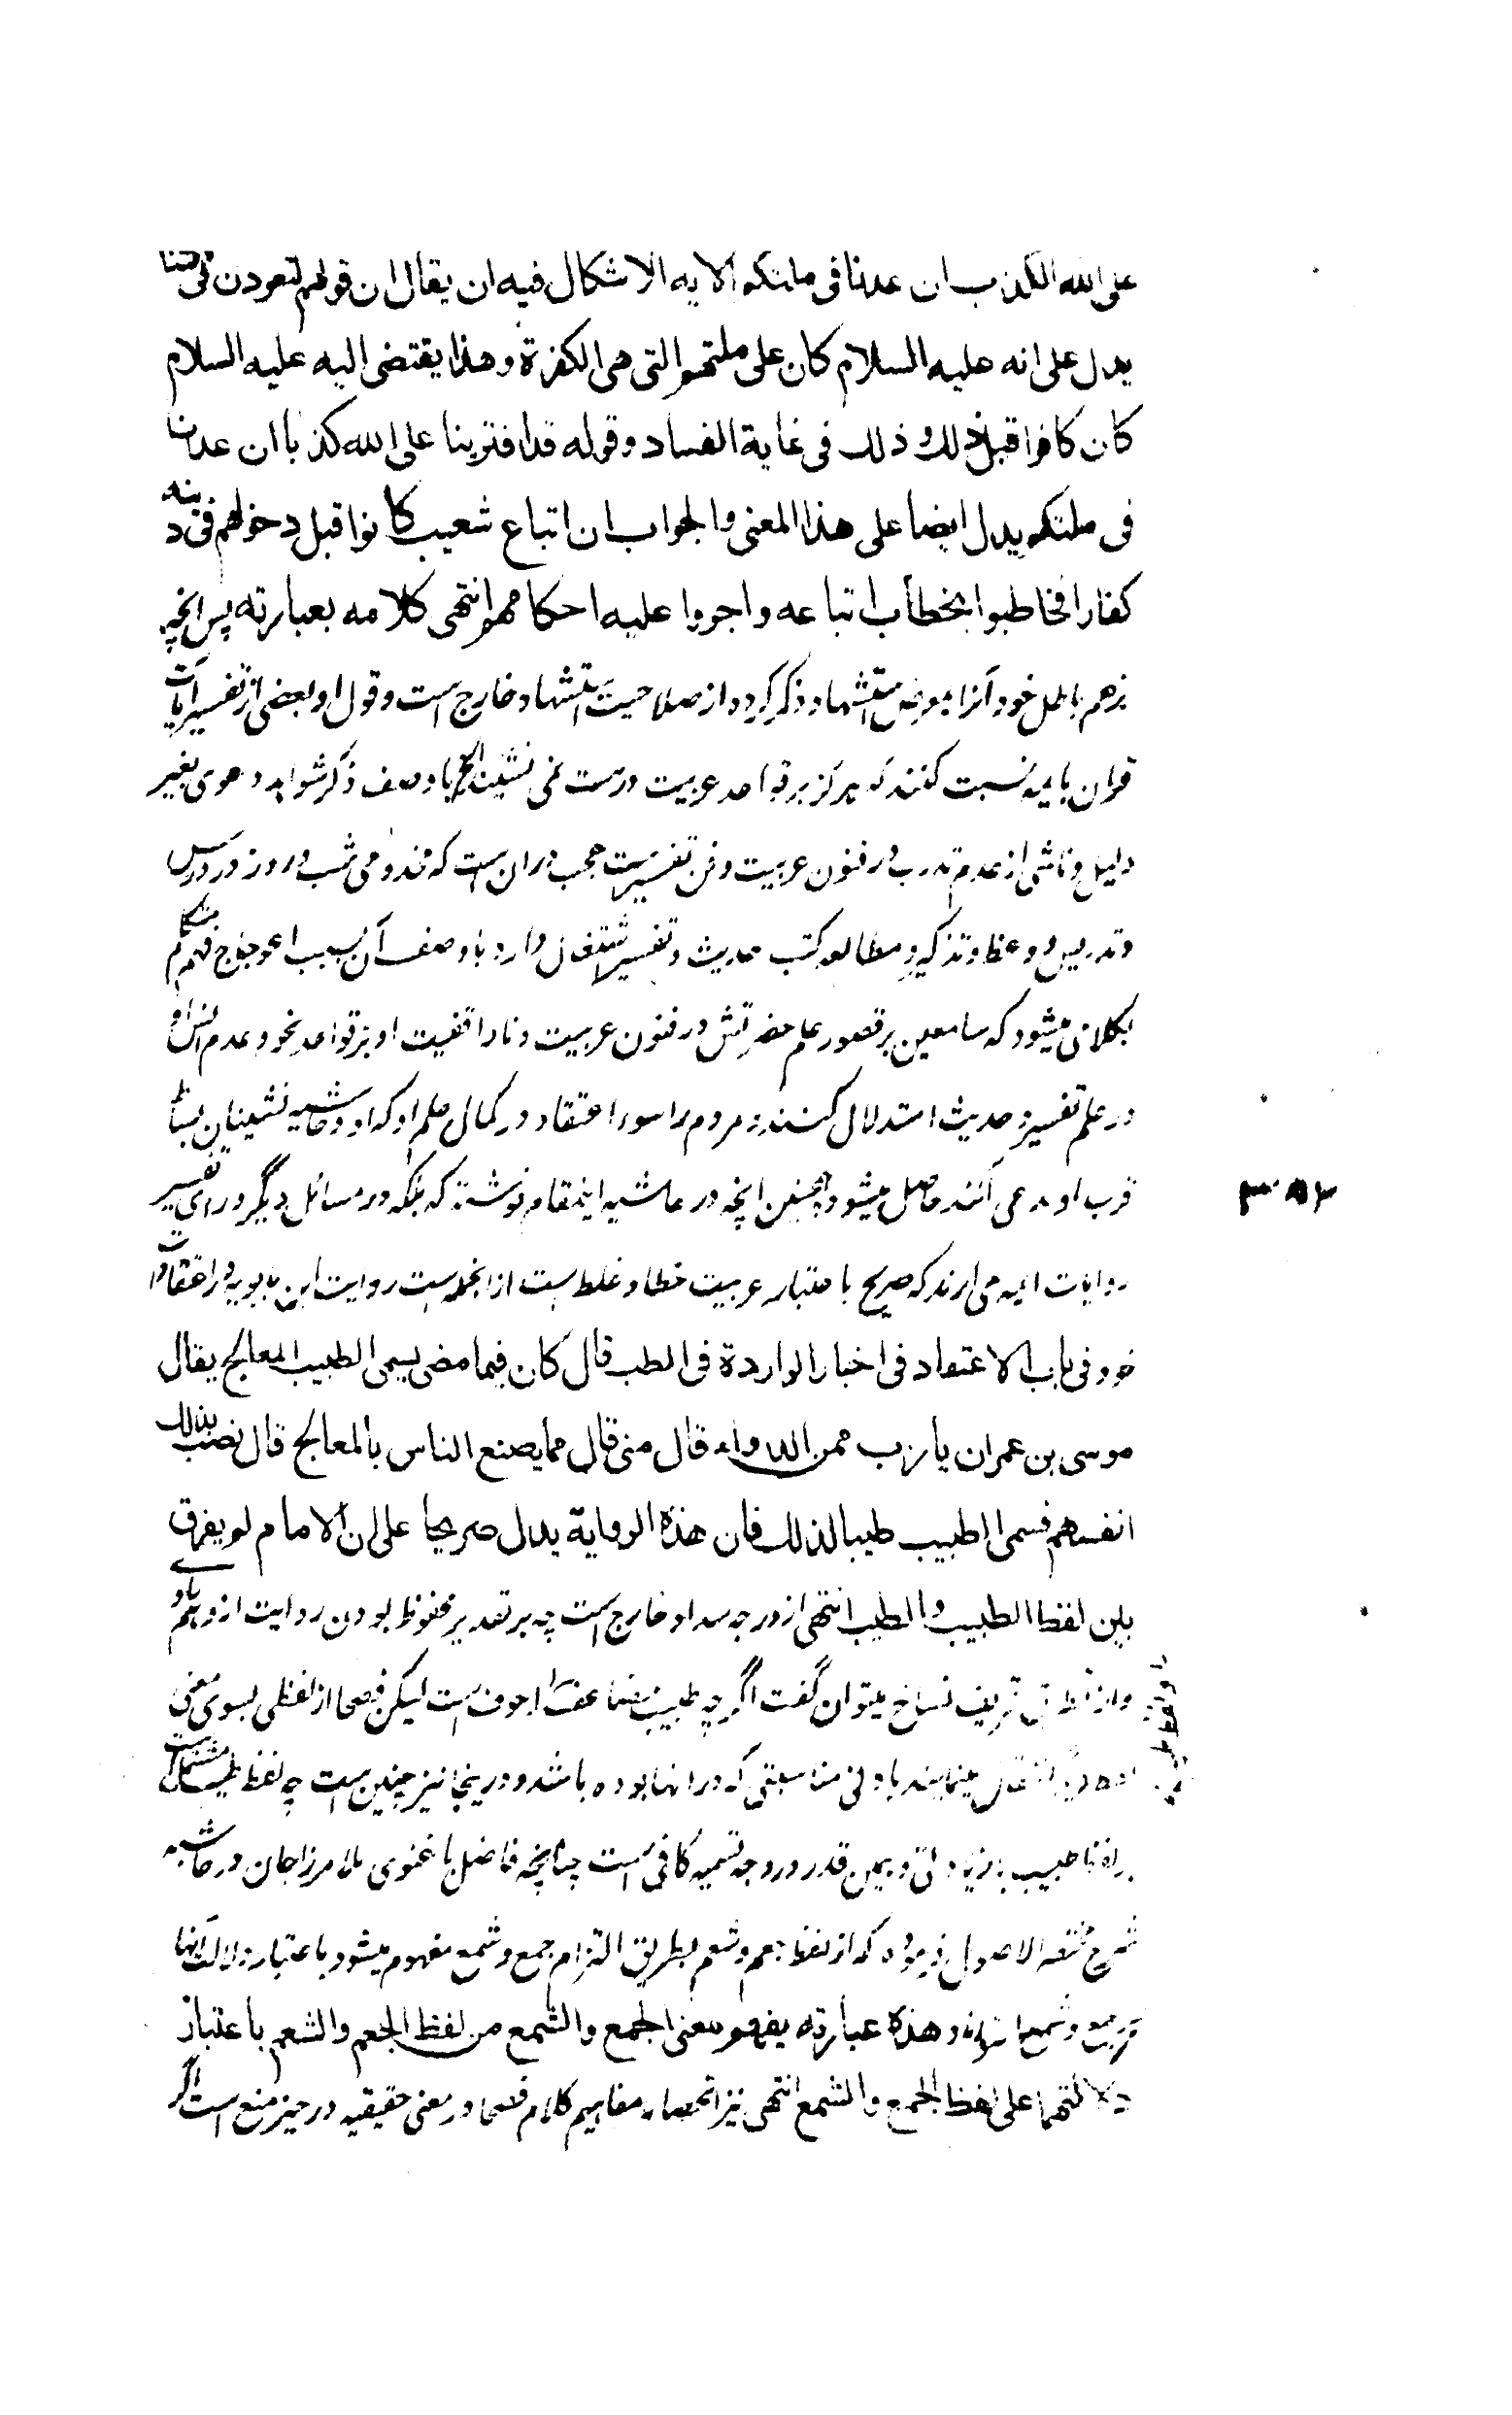 على الله الكذب ان عدنا فى ملتكم الايه الاشكال فيه ان يقال ان قولهم لتعودن فى ملتنا
يدل على انه عليه السلام كان على ملتهم التى هى الكفرة وهذا يقتضى اليه عليه السلام
كان كافرا قبل ذلك و ذلك فى غاية الفساد وقوله قد افترينا على الله كذبا ان عدنا
فى ملتكم يدل ايضا على هذا المعنى والجواب ان اتباع شعيب كانوا قبل دخولهم فى دينه
كفارا فخاطبوا بخطاب اتباعه واجروا عليه احكامهم انتهى كلامه بعبارته پس انچه
بزعم باطل خود آنرا بمعرض استشهاد ذكر كرده از صلاحيت استشهاد خارج است وقول او بعضى از تفسير آيات
قران بايمه نسبت كنند كه هرگز برقواعد عربيت درست نمى نشيند الخ باوصف ذكر شواهد دعوى بغير
دليل و ناشى از عدم تدرب در فنون عربيت و فن تفسير ست عجب دران است كه مخدومى شب و روز در درس
و تدريس و وعظ و تذكير و مطالعه كتب حديث و تفسير اشتغال دارد باوصف آن بسبب اعوجاج فهم متكلم
بكلامى ميشود كه سامعين بر قصور علم حضرتش در فنون عربيت و ناواقفيت او بر قواعد نحو و عدم انس او
در علم تفسير و حديث استدلال كنند و مردم را سوء اعتقاد در كمال علم او كه او و حاشيه نشينان بساط
قرب او مدعى آنند حاصل ميشود همچنين انچه در حاشيه اينمقام نوشته كه بلكه در مسائل ديگر وراى تفسير
روايات ايمه مى آرند كه صريح باعتبار عربيت خطا و غلط است ازانجمله است روايت ابن بابويه در اعتقادات
خود فى باب الاعتقاد فى اخبار الواردة فى الطب قال كان فيما مضى يسمى الطبيب المعالج يقال
موسى بن عمران يا رب ممن الداء قال منى قال مما يصنع الناس بالمعالج قال بذلك
انفسهم فسمى الطبيب طبيبا لذلك فان هذه الرواية يدل صريحا على ان الامام لم يفرق
بين لفظ الطبيب والطيب انتهى از درجه سداد خارج است چه بر تقدير محفوظ بودن روايت از وهم
تحريف نساخ ميتوان گفت اگرچه طبيب مضاعف اجوف است ليكن فصحا از لفظى بسوى معنى
انتقال مينمايند بادنى مناسبتى كه درانها بوده باشد و درينجا نيز چنين است چه لفظ طبيب مشتمل است
بر لفظ طيب بزيادتى و همين قدر در وجه تسميه كافى است چنانچه فاضل باغنوى ملا مرزا جان در حاشيه
شرح مختصر الاصول فرموده كه از لفظ جعم و شعم بطريق التزام جمع و شمع مفهوم ميشود باعتبار دلالت آنها
بر جمع و شمع وهذه عبارته يفهم معنى الجمع والشمع من لفظ الجعم والشعم باعتبار
دلالتهما على لفظ الجمع والشمع انتهى نيز انحصار مفاهيم كلام فصحا در معنى حقيقيه در حيز منع است اگر